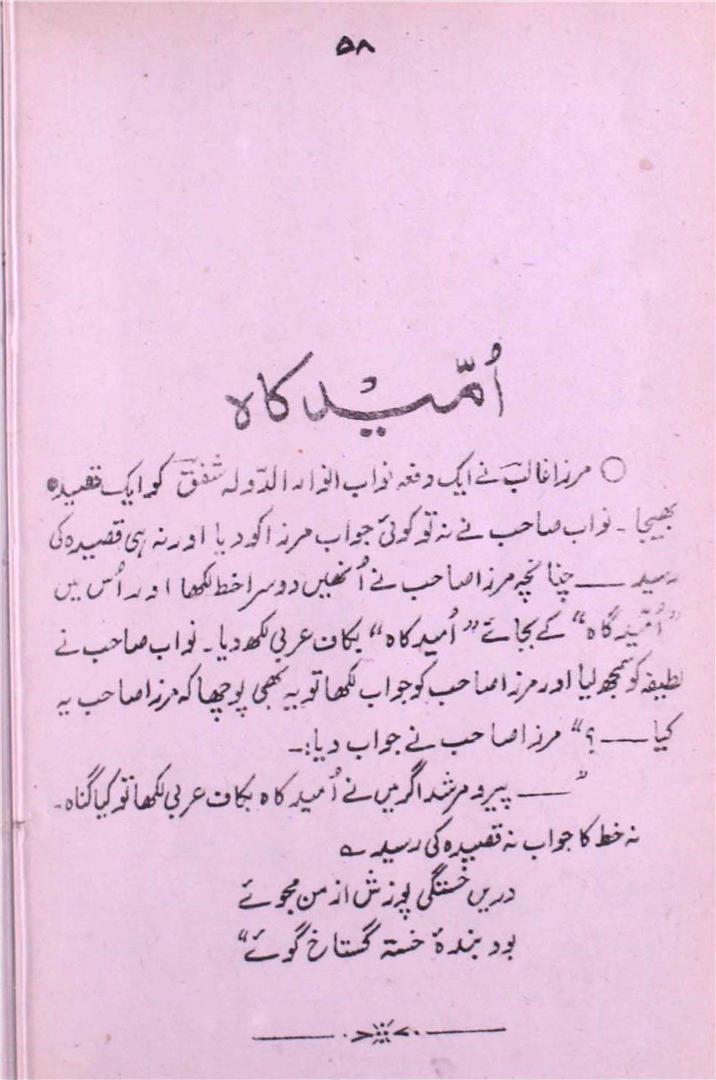 ۵۸
اُمّید کاہ
○ مرزا غالبؔ نے ایک دفعہ نواب انوار الدّولہ شفقؔ کو ایک قصیدہ
بھیجا۔ نواب صاحب نے نہ تو کوئی جواب مرزا کو دیا اور نہ ہی قصیدہ کی
رسید ــــ چنانچہ مرزا صاحب نے اُنھیں دوسرا خط لکھا اور اُس میں
”اُمّید گاہ“ کے بجائے ”اُمید کاہ“ بکاف عربی لکھ دیا۔ نواب صاحب نے
لطیفہ کو سمجھ لیا اور مرزا صاحب کو جواب لکھا تو یہ بھی پوچھا کہ مرزا صاحب یہ
کیا ــــ ؟“ مرزا صاحب نے جواب دیا:۔
”ــــ پیر و مرشد اگر میں نے اُمید کاہ بکاف عربی لکھا تو کیا گناہ۔
نہ خط کا جواب نہ قصیدہ کی رسید ؎
دریں خستگی پوزش از من مجوئے
بود بندۂ خستہ گستاخ گوئے“